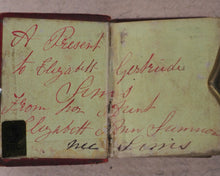 A Present
to Elizabeth Gertrude
Sims
From her Aunt
Elizabeth Ann Sumner
nee Sims